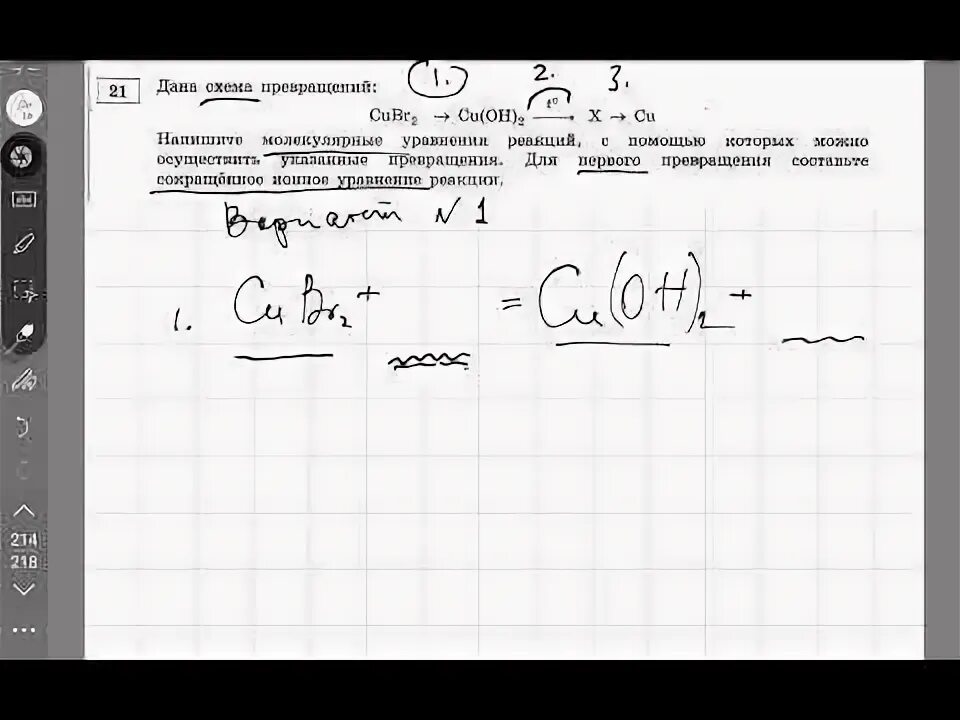 1. 2. 3.
21 Дана схема превращений:
CuBr₂ → Cu(OH)₂ —t°→ X → Cu
Напишите молекулярные уравнения реакций, с помощью которых можно
осуществить указанные превращения. Для первого превращения составьте
сокращённое ионное уравнение реакции.
Вариант N 1
1. CuBr₂ + = Cu(OH)₂ +
214
218